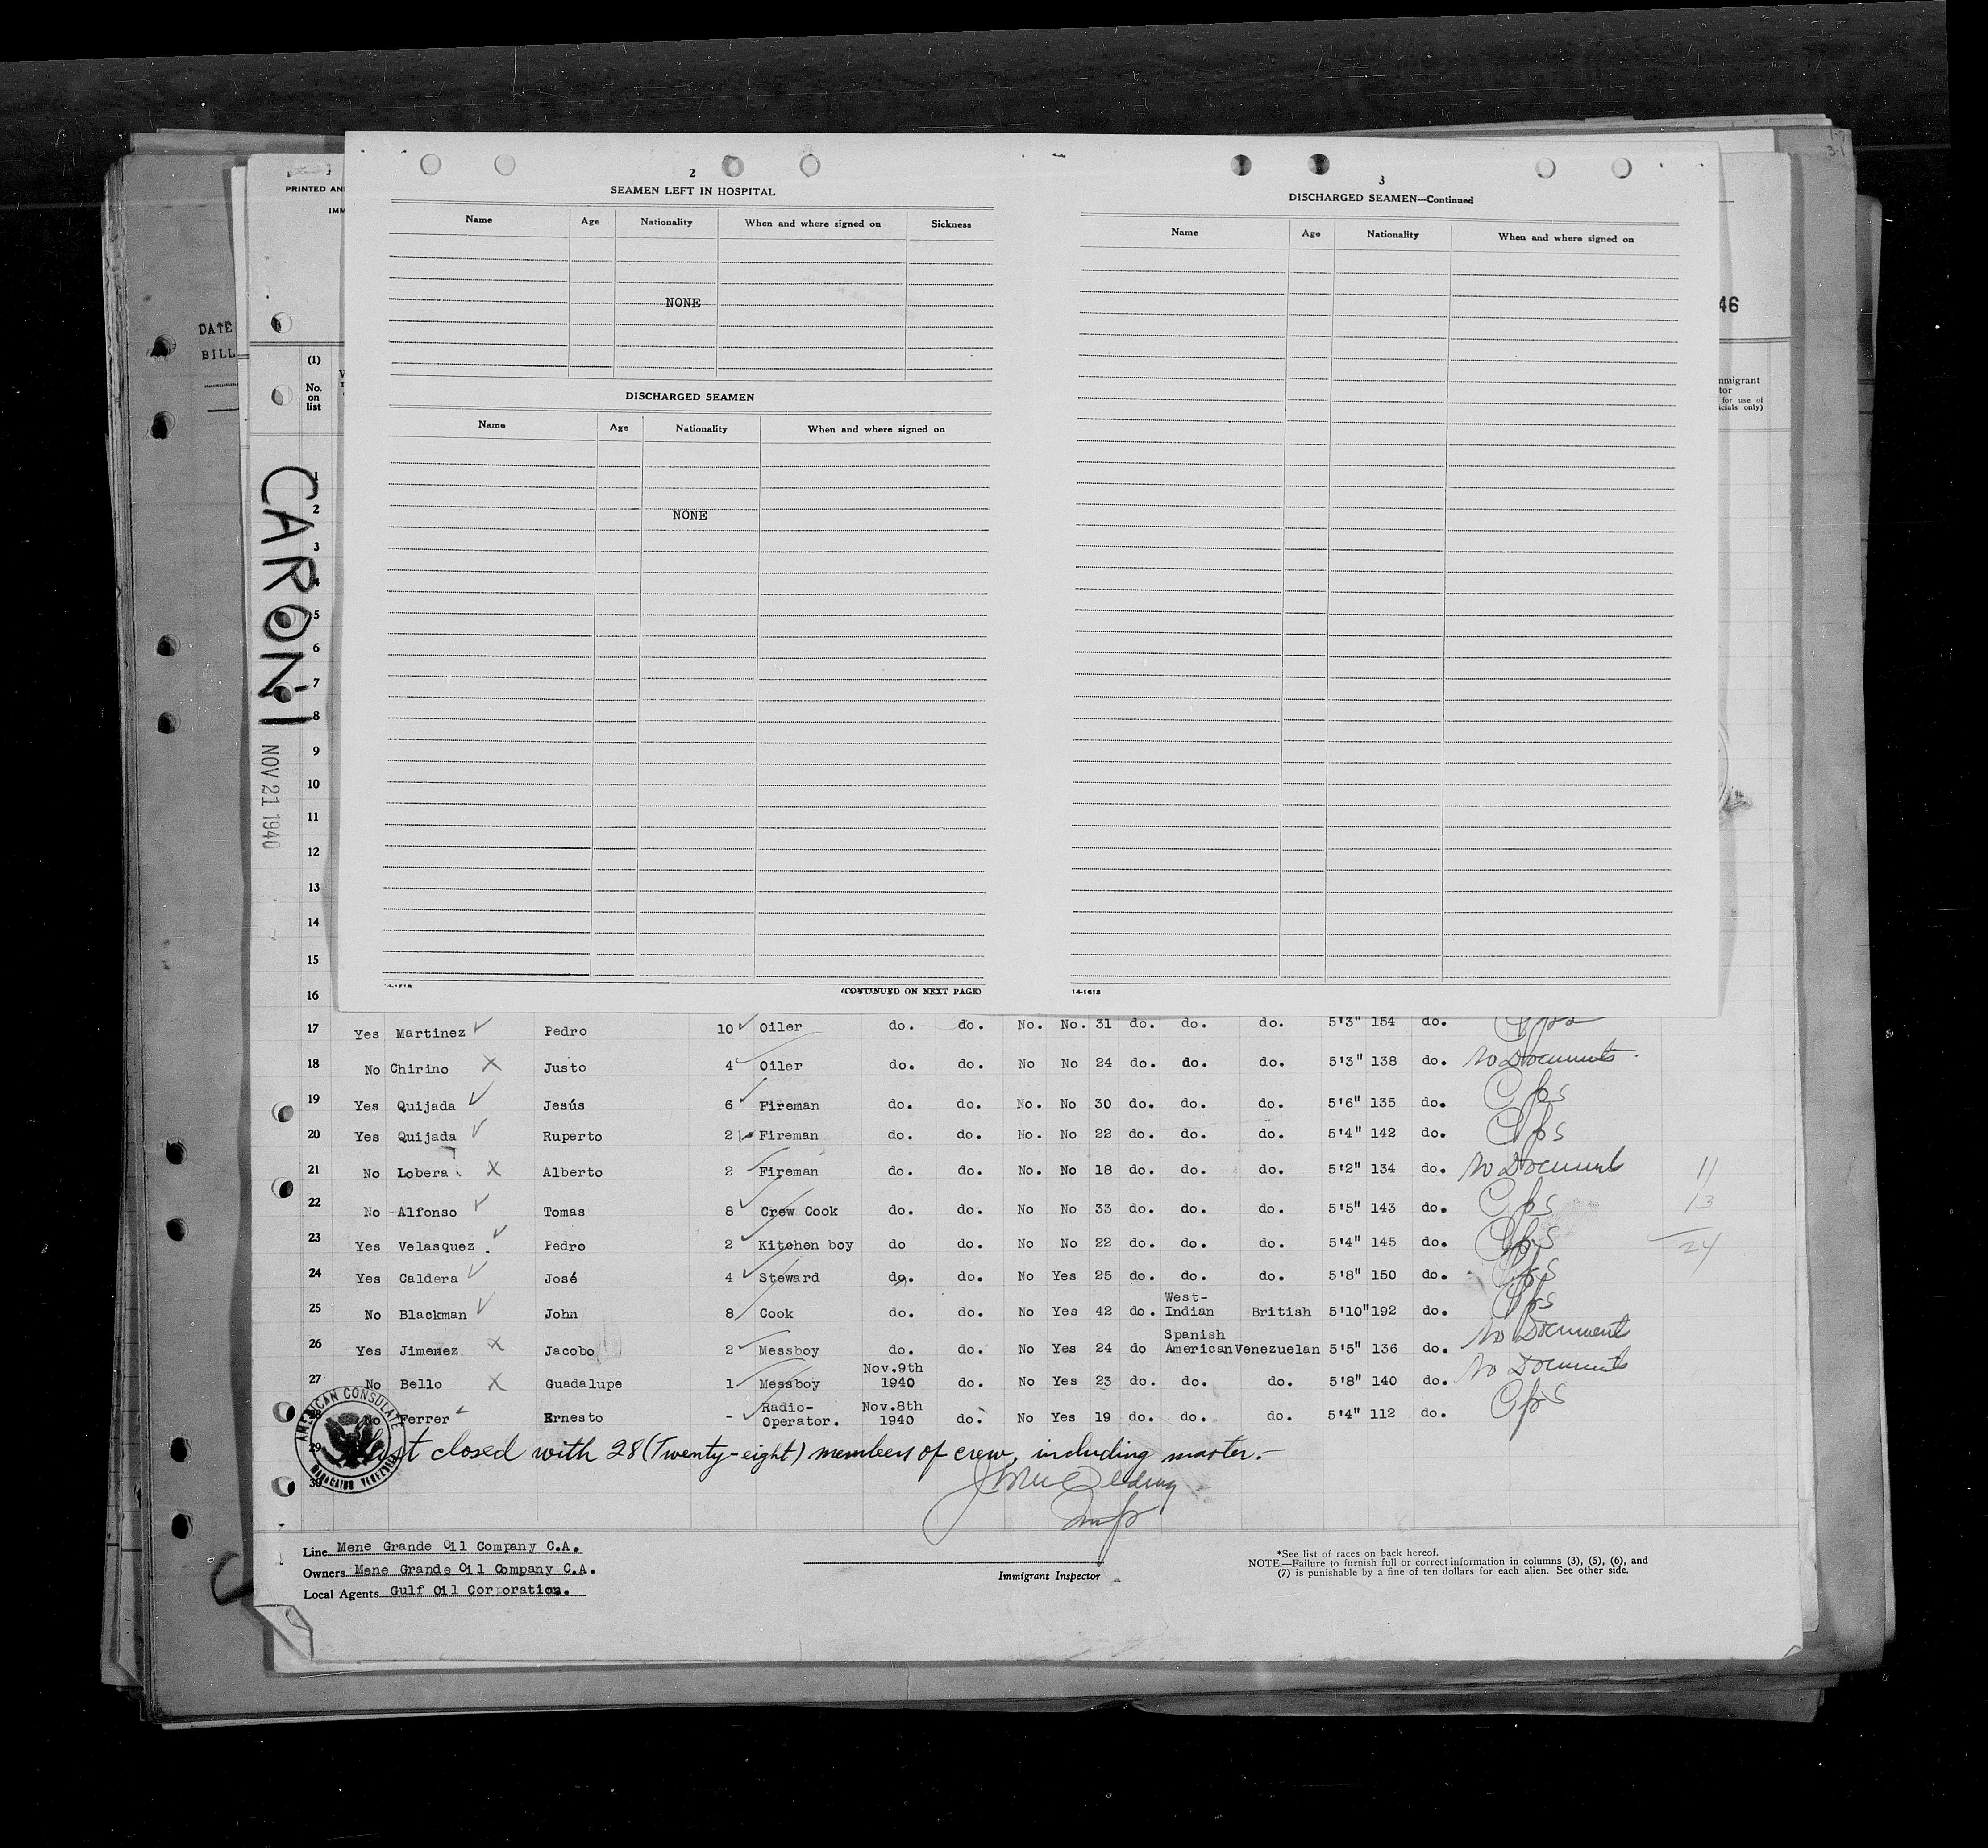 2
SEAMEN LEFT IN HOSPITAL
Name Age Nationality When and where signed on Sickness
NONE
DISCHARGED SEAMEN
Name Age Nationality When and where signed on
NONE
(CONTINUED ON NEXT PAGE)
3
DISCHARGED SEAMEN—Continued
Name Age Nationality When and where signed on
14-1618
PRINTED AN
IMM
DATE
BILL
46
(1)
No.
on
list
nmigrant
tor
for use of
icials only)
CARONI
NOV 21 1940
1
2
3
4
5
6
7
8
9
10
11
12
13
14
15
16
17 Yes Martinez Pedro 10 Oiler do. do. No. No. 31 do. do. do. 5'3" 154 do.
18 No Chirino X Justo 4 Oiler do. do. No No 24 do. do. do. 5'3" 138 do. No Documents.
19 Yes Quijada Jesús 6 Fireman do. do. No. No 30 do. do. do. 5'6" 135 do.
20 Yes Quijada Ruperto 2 Fireman do. do. No. No 22 do. do. do. 5'4" 142 do.
21 No Lobera X Alberto 2 Fireman do. do. No. No 18 do. do. do. 5'2" 134 do. No Document 11
22 No Alfonso Tomas 8 Crew Cook do. do. No No 33 do. do. do. 5'5" 143 do. 13
23 Yes Velasquez Pedro 2 Kitchen boy do do. No No 22 do. do. do. 5'4" 145 do. 24
24 Yes Caldera José 4 Steward do. do. No Yes 25 do. do. do. 5'8" 150 do.
25 No Blackman John 8 Cook do. do. No Yes 42 do. West-Indian British 5'10" 192 do.
26 Yes Jimenez X Jacobo 2 Messboy do. do. No Yes 24 do Spanish American Venezuelan 5'5" 136 do. No Document
27 No Bello X Guadalupe 1 Messboy Nov.9th 1940 do. No Yes 23 do. do. do. 5'8" 140 do. No Documents
No Ferrer Ernesto - Radio-Operator. Nov.8th 1940 do. No Yes 19 do. do. do. 5'4" 112 do.
29
List closed with 28 (Twenty-eight) members of crew, including master.-
30
AMERICAN CONSULATE
MARACAIBO VENEZUELA
Line Mene Grande Oil Company C.A.
Owners Mene Grande Oil Company C.A.
Local Agents Gulf Oil Corporation.
Immigrant Inspector
*See list of races on back hereof.
NOTE.—Failure to furnish full or correct information in columns (3), (5), (6), and
(7) is punishable by a fine of ten dollars for each alien. See other side.